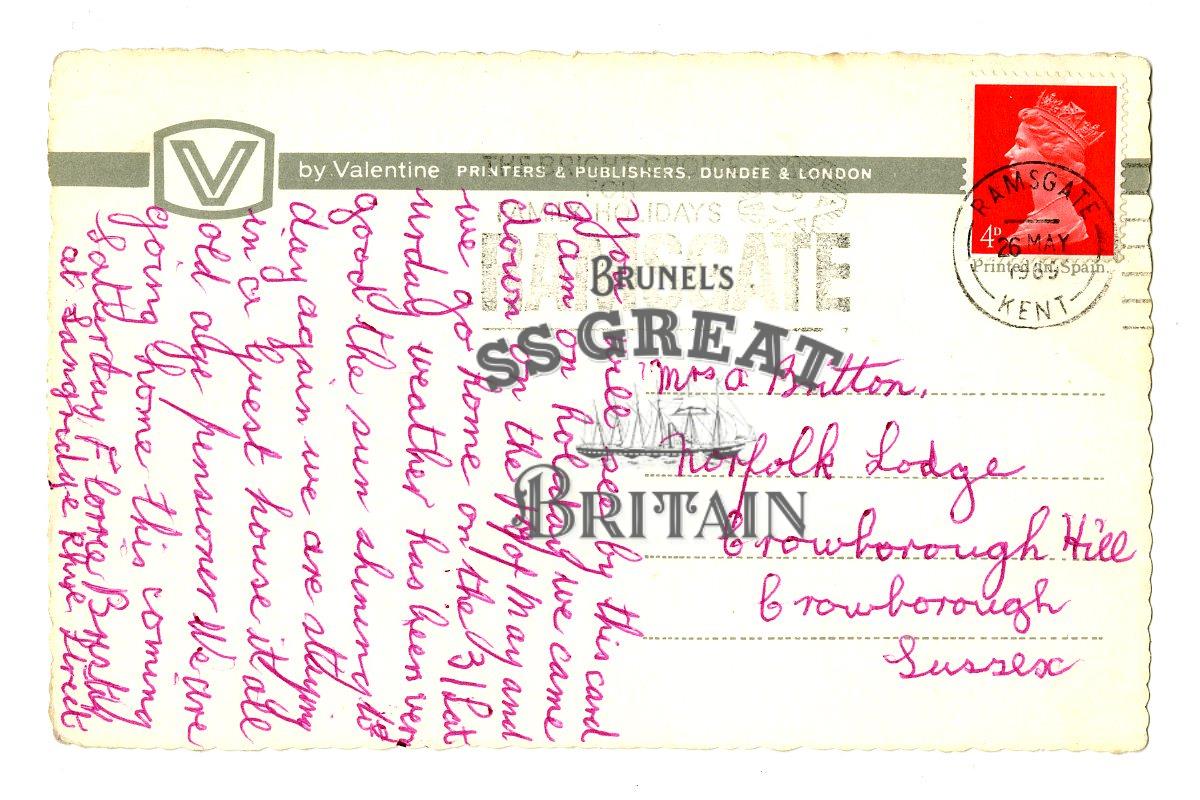 V
by Valentine PRINTERS & PUBLISHERS, DUNDEE & LONDON
THE BRIGHT CHOICE
FOR
FAMILY HOLIDAYS
RAMSGATE
4D
RAMSGATE
26 MAY
KENT
Printed in Spain.
BRUNEL'S
SS GREAT
BRITAIN
Mrs A Britton,
Norfolk Lodge
Crowborough Hill
Crowborough
Sussex
You will see by this card
I am on holaday we came
down on the of May and
we go home on the 31 Sat
urday weather has been very
good the sun shining to
day again we are staying
in a Guest house it all
old age pensioner We are
going home this coming
Satturday
at